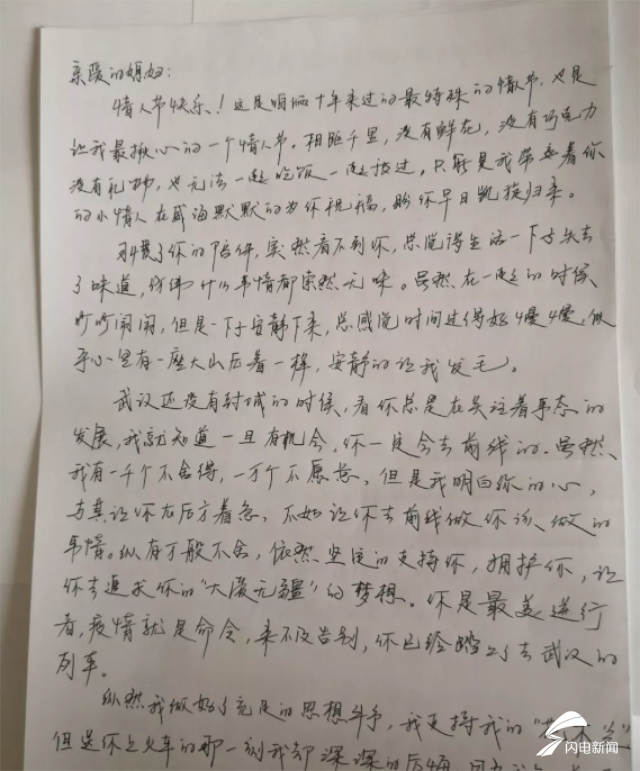 亲爱的媳妇：
情人节快乐！这是咱俩十年来过的最特殊的情人节，也是
让我最揪心的一个情人节。相距千里，没有鲜花，没有巧克力
没有礼物，也无法一起吃饭一起度过。只能是我带着你
的小情人在威海默默的为你祝福，盼你早日凯旋归来。
习惯了你的陪伴，突然看不到你，总觉得生活一下子失去
了味道，仿佛什么事情都索然无味。虽然在一起的时候
吵吵闹闹，但是一下子安静下来，总感觉时间过得好慢慢，似
乎心里有一座大山压着一样，安静的让我发毛。
武汉还没有封城的时候，看你总是在关注着事态的
发展，我就知道一旦有机会，你一定会去前线的。虽然
我有一千个不舍得，一万个不愿意，但是我明白你的心，
与其让你在后方着急，不如让你去前线做你该做的
事情。纵有万般不舍，依然坚定的支持你，拥护你，让
你去追求你的“大爱无疆”的梦想。你是最美逆行
者，疫情就是命令，来不及告别，你已经踏上了去武汉的
列车。
纵然我做好了充足的思想斗争，我支持我的“花木兰”
但送你上火车的那一刻我却深深的后悔
闪电新闻